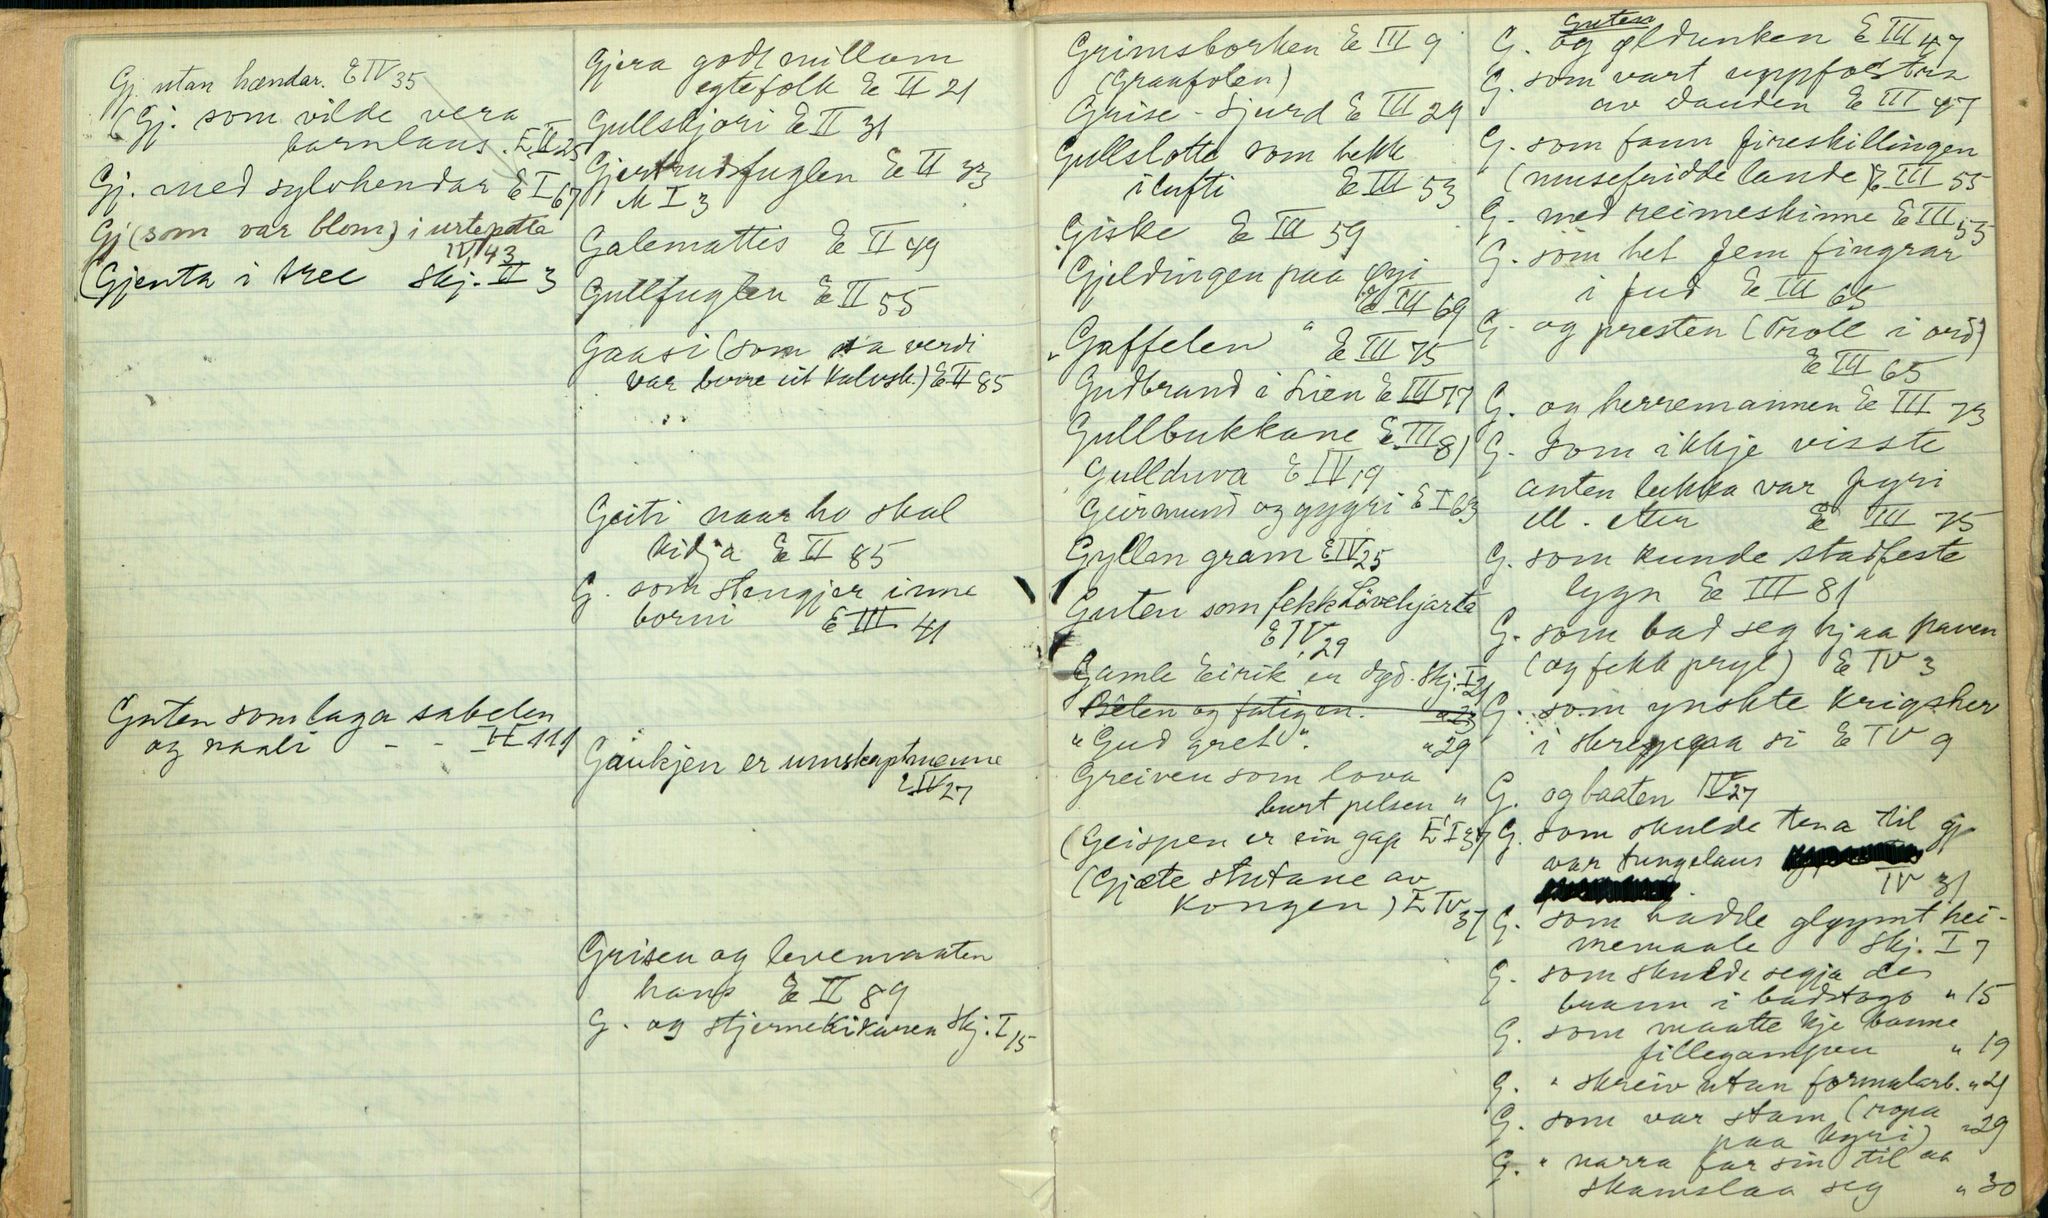 Gj. utan hændar. E IV 35
(Gj. som vilde vera
barnlaus. E II 25
Gj. med sylvhendar E I 67
Gj (som var blom) i urtepotta
IV, 43
(Gjenta i tree Skj. II 3
Guten som laga sabelen
og naali - - II 111
Gjera godt millom
egtefolk E II 21
Gullskjori E II 31
Gjertrudsfuglen E II 33
M I 3
Galemattis E II 49
Gullfuglen E II 55
Gaasi (som sa verdi
var borre ut kalvsk.) E II 85
Geiti naar ho skal
kidja E II 85
G. som stengjer inne
borni E III 41
Gaukjen er umskaptmenne
E IV 27
Grisen og levemaaten
hans E II 89
G. og stjernekikaren Skj. I 15
Grimsborken E III 9
(Graafolen)
Grise-Sjurd E III 29
Gullslotte som hekk
i lufti E III 53
Giske E III 59
Gjeldingen paa øyi
E III 69
"Gaffelen" E III 75
Gudbrand i Lien E III 77
Gullbukkane E III 81
Gullduva E IV 19
Geirmund og gygri E I 63
Gyllen gram E IV 25
Guten som fekk Løvehjarta
E IV, 29
Gamle Eirik er død. Skj. I 21
Bilen og fatigen. " 23
"Gud gret". " 29
Greiven som lova
burt pelsen "
(Geispen er ein gap E I 37
(Gjæte stutane av
kongen) E IV 37
Guten
G. og øldunken E III 47
G. som vart uppfostra
av dauden E III 47
G. som fann fireskillingen
(musefridde lande) E III 55
G. med reimeskinne E III 55
G. som het fem fingrar
i fud E III 65
G. og presten (Troll i ord)
E III 65
G. og herremannen E III 73
G. som ikkje visste
anten lukka var fyri
ell. etter E III 75
G. som kunde stadfeste
lygn E III 81
G. som bad seg hjaa paven
(og fekk pryl) E IV 3
G. som ynskte krigsher
i skreppaa si E IV 9
G. og baaten IV 27
G. som skulde tena til gj
var tungelaus
IV 31
G. som hadde gløymt hei-
memaale Skj. I 7
G. som skulde segja de
brann i badstogo " 15
G. som maatte kje banne
fillegampen " 19
G. " skreiv utan formularb. " 21
G. som var stam (ropa
paa kyri) " 29
G. " narra far sin til aa
skamslaa seg " 30